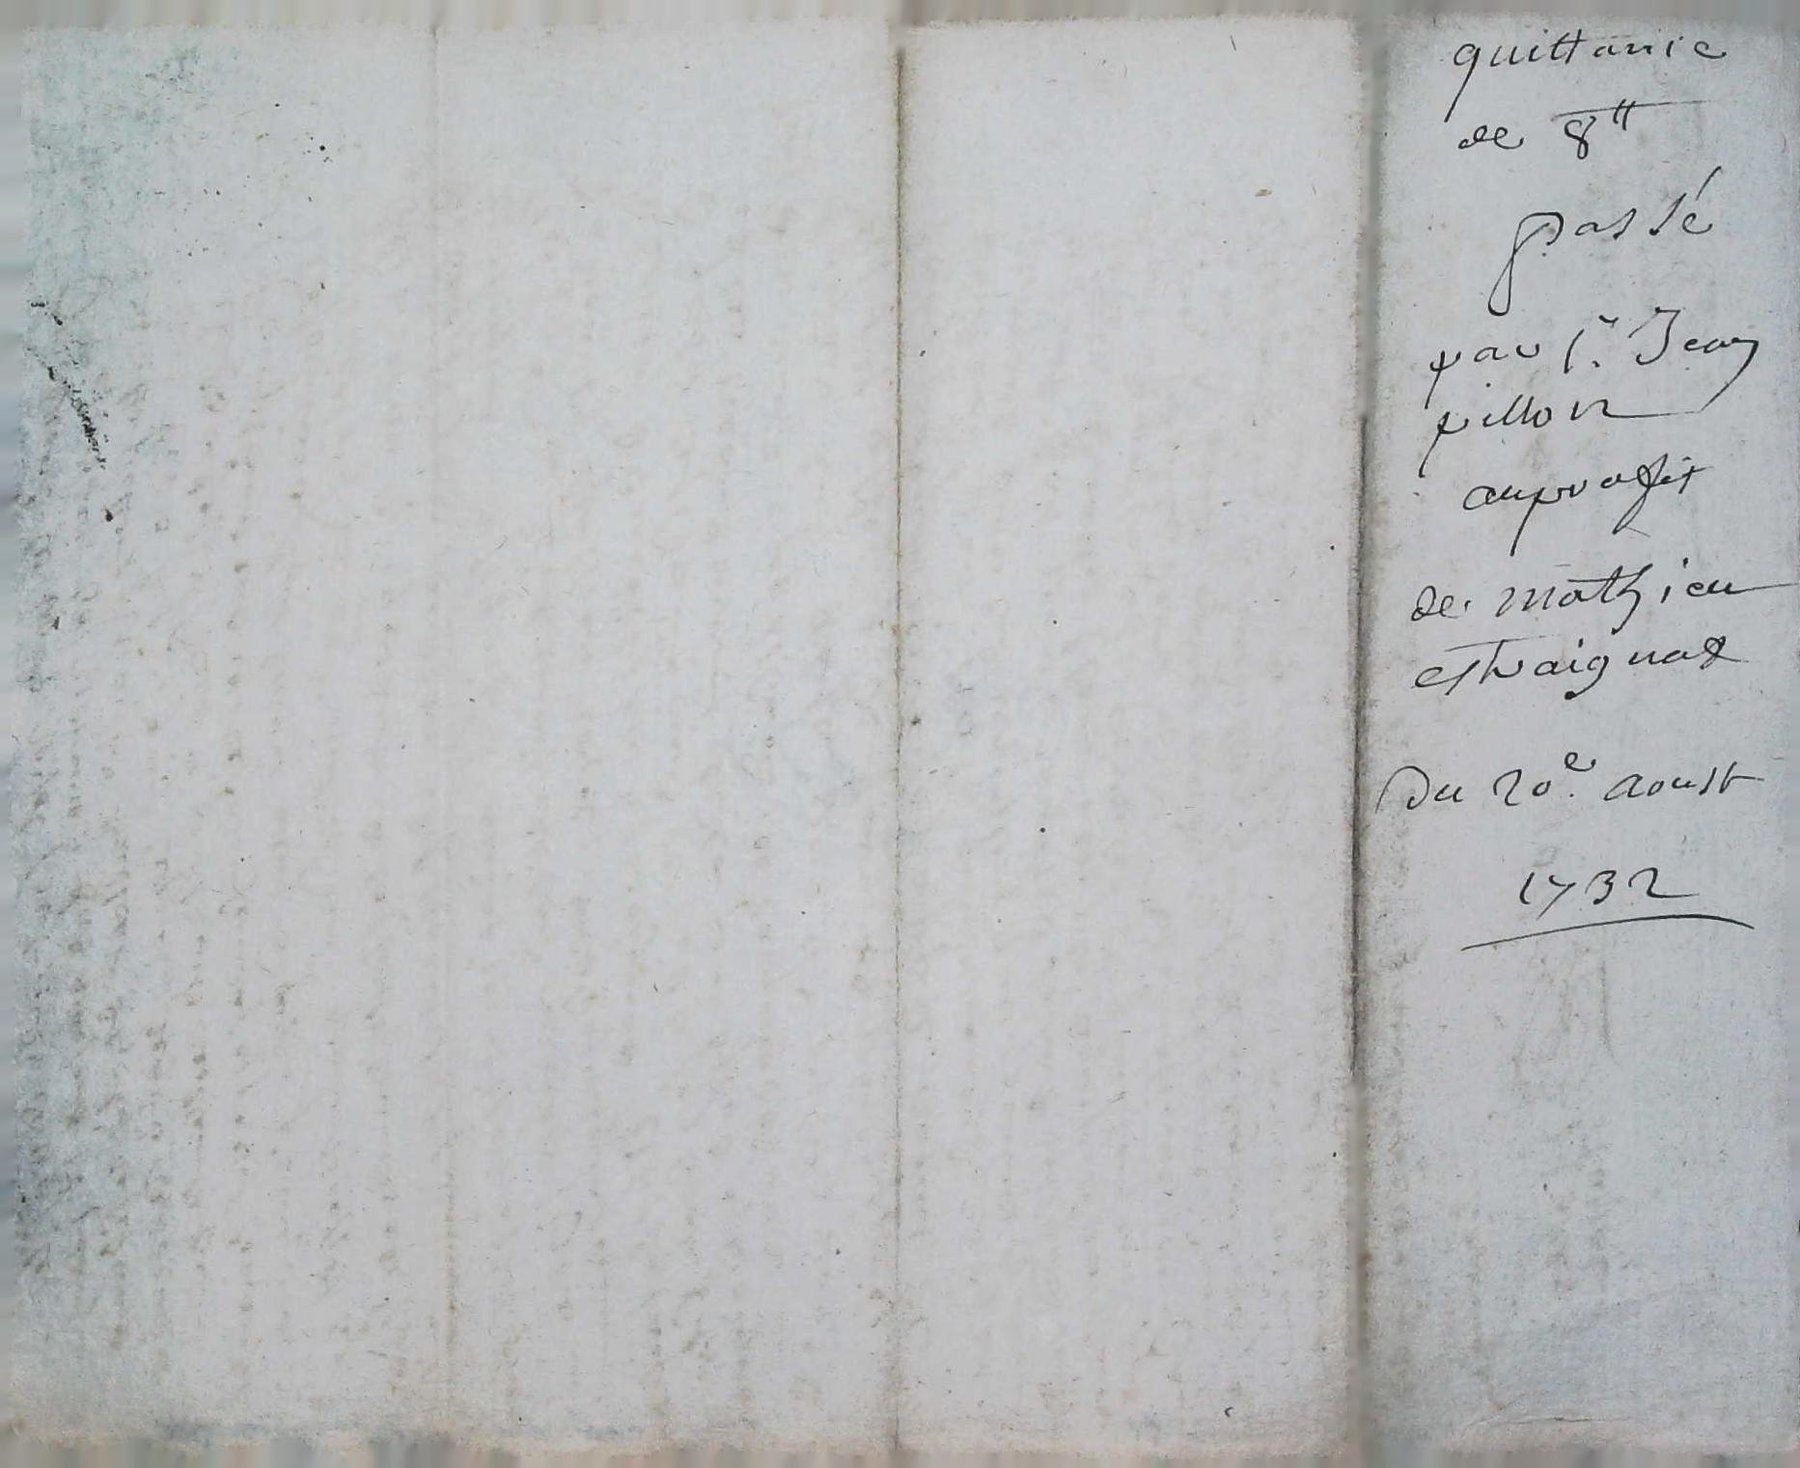 quittance
de 8tt
passé
par sr. Jean
pillon
au profit
de mathieu
estraignat
Du 20e. aoust
1732